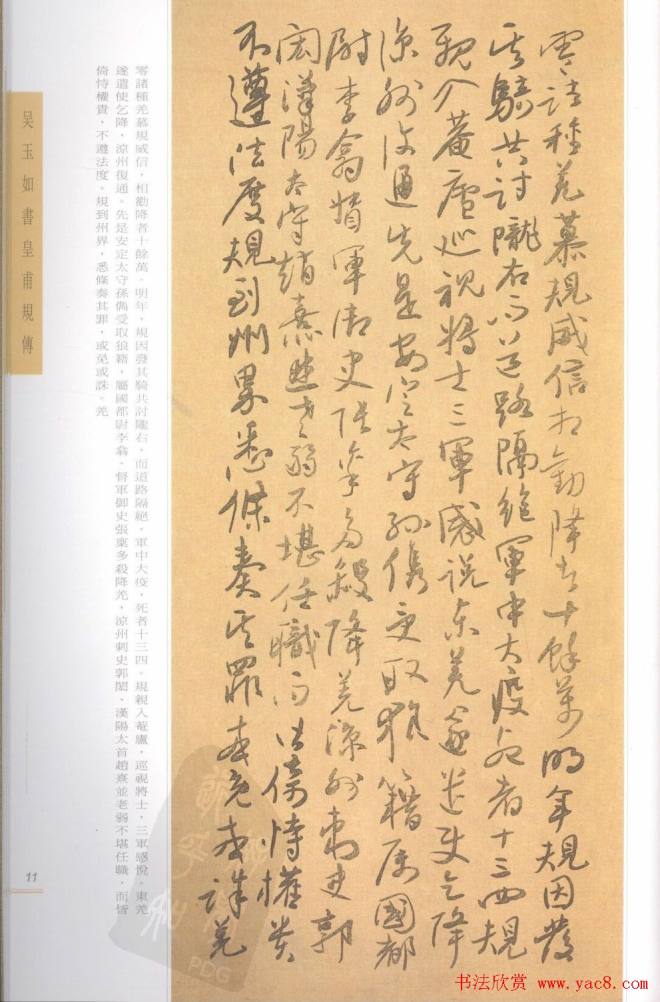 零諸種羌慕規威信相勸降者十餘萬明年規因發
其騎共討隴右而道路隔絕軍中大疫死者十三四規
親入菴廬巡視將士三軍感說東羌遂遣使乞降
涼州復通先是安定太守孫儁受取狼籍屬國都
尉李翕督軍御史張稟多殺降羌涼州刺史郭
閎漢陽太守趙熹並老弱不堪任職而皆倚恃權貴
不遵法度規到州界悉條奏其罪或免或誅羌
零諸種羌慕規威信，相勸降者十餘萬。明年，規因發其騎共討隴右，而道路隔絕，軍中大疫，死者十三四。規親入菴廬，巡視將士，三軍感悅。東羌
遂遣使乞降，涼州復通。先是安定太守孫儁受取狼籍，屬國都尉李翕、督軍御史張稟多殺降羌，涼州刺史郭閎、漢陽太首趙熹並老弱不堪任職，而皆
倚恃權貴，不遵法度。規到州界，悉條奏其罪，或免或誅。羌
吴玉如書皇甫規傳
11
PDG
书法欣赏 www.yac8.com